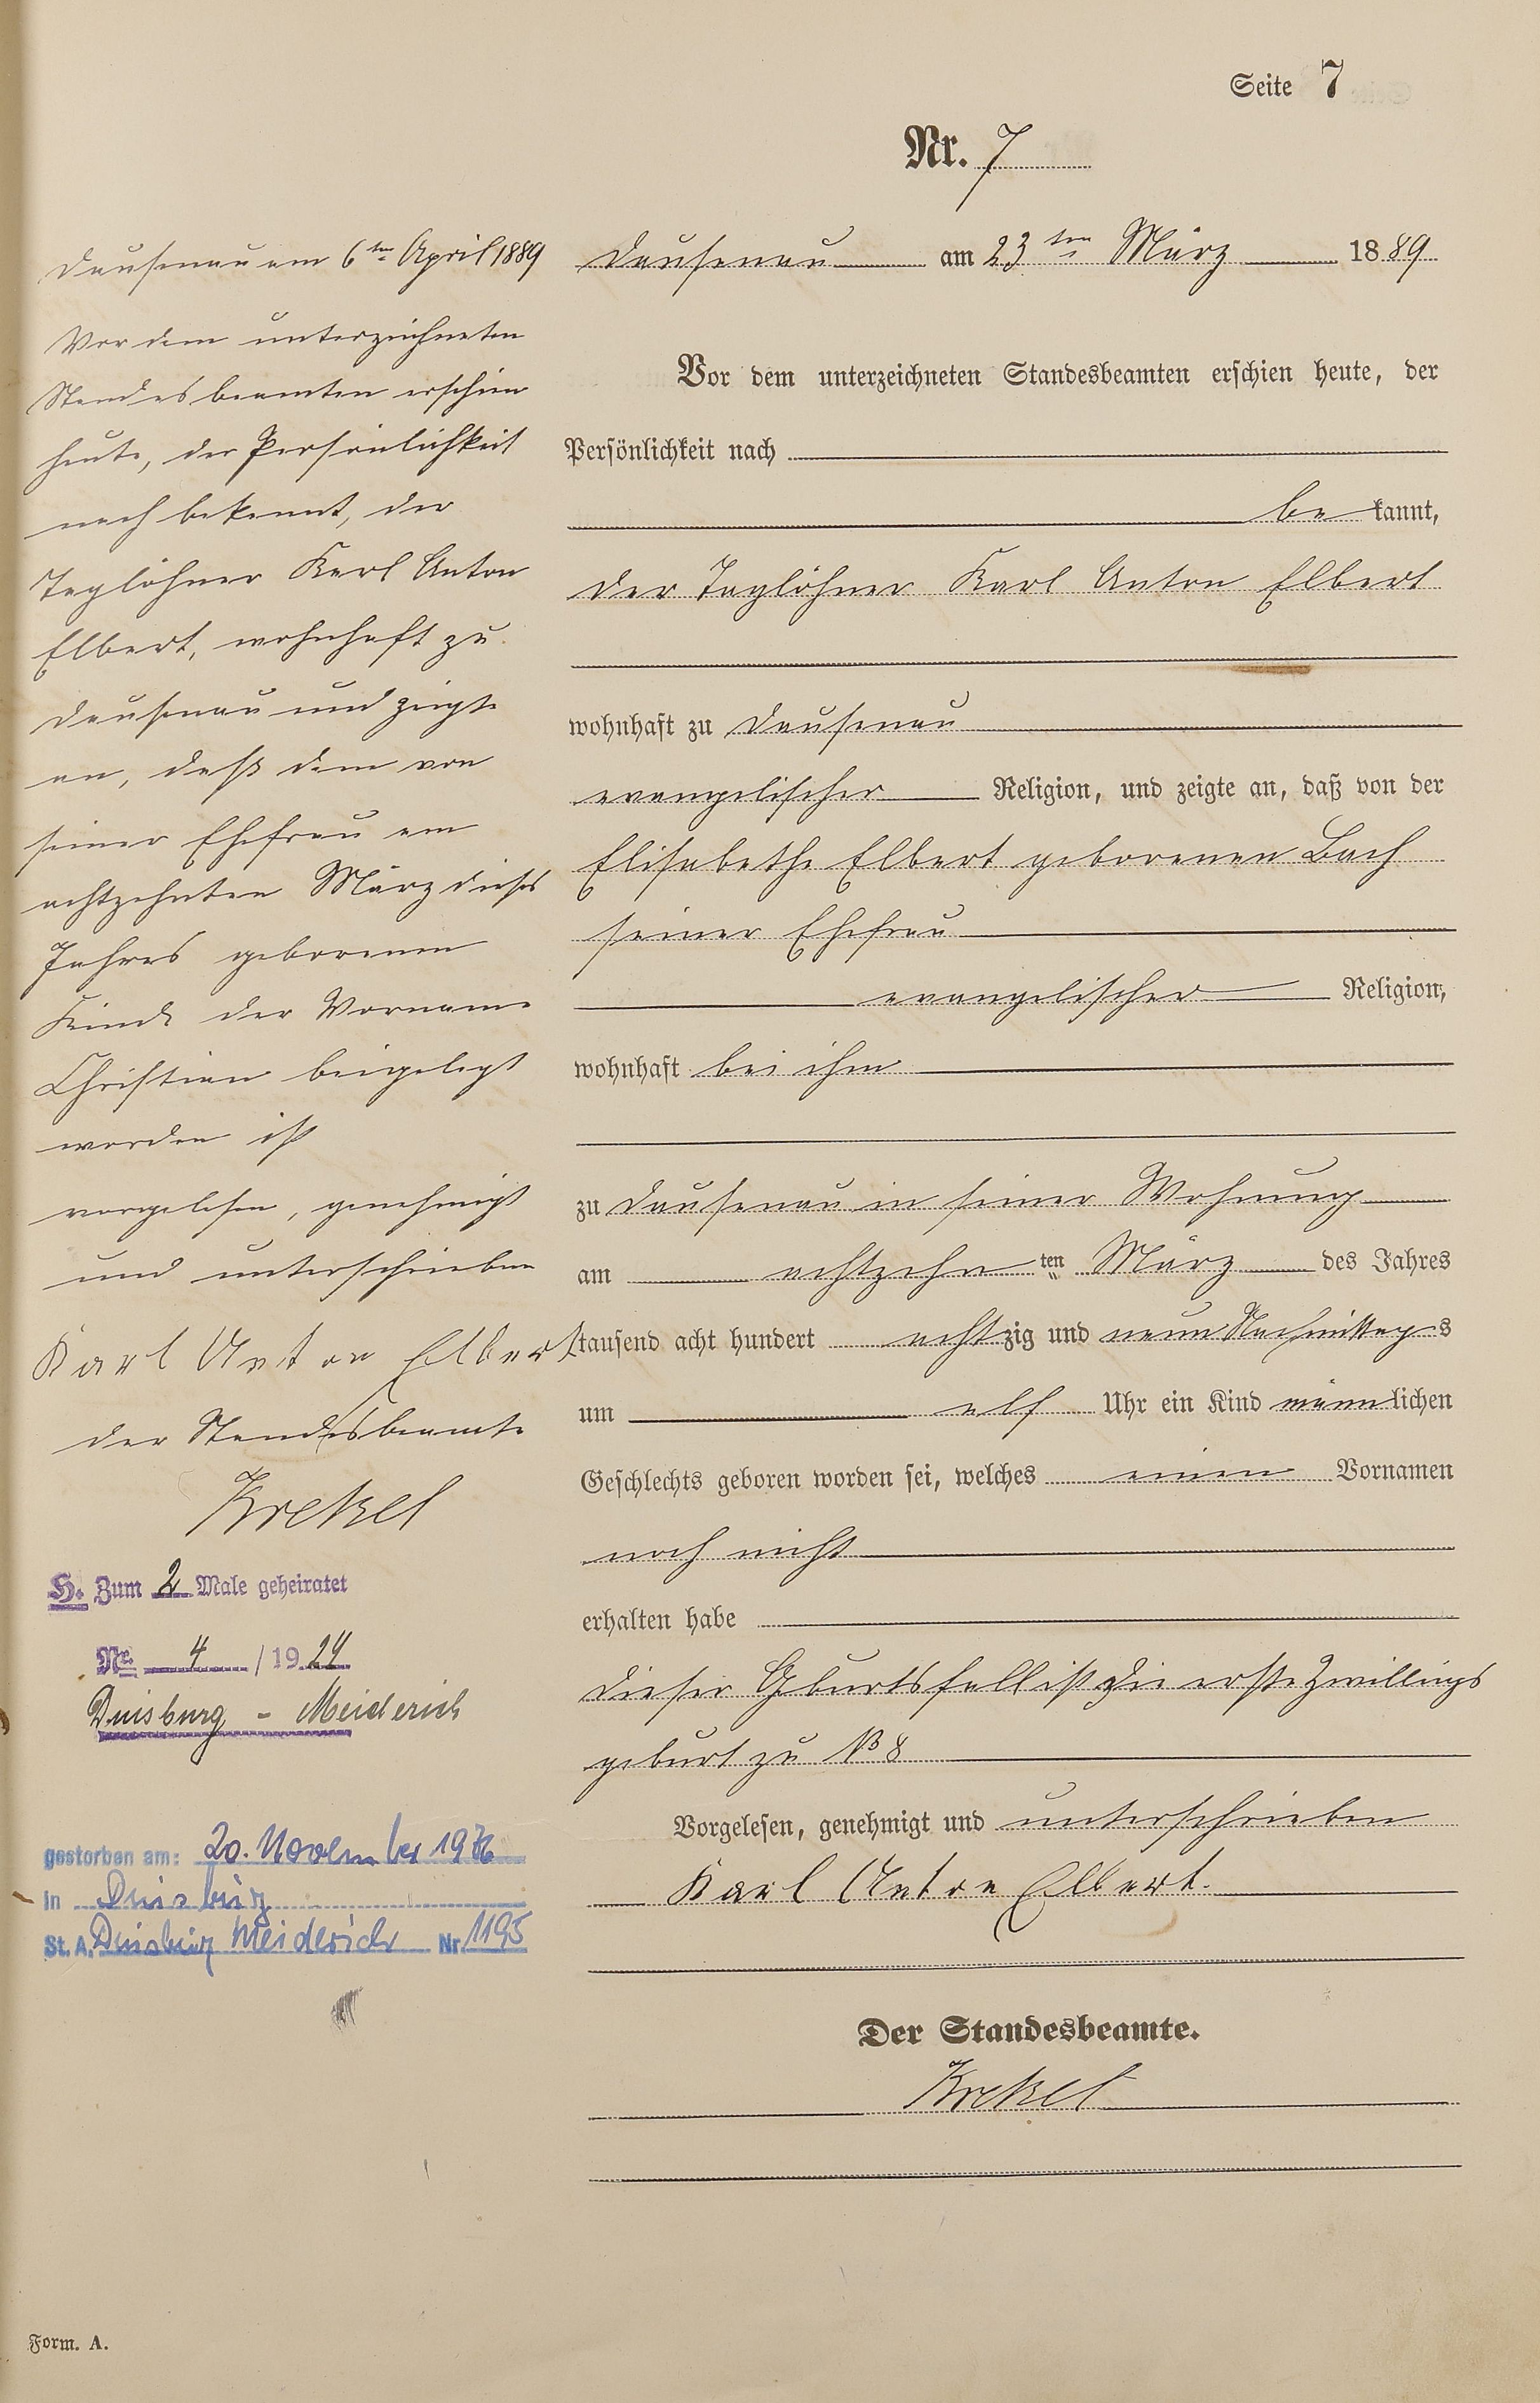 Seite 7
Nr. 7
Dausenau am 23ten März 1889
Vor dem unterzeichneten Standesbeamten erschien heute, der
Persönlichkeit nach
be kannt,
der Taglöhner Karl Anton Elbert
wohnhaft zu Dausenau
evangelischer Religion, und zeigte an, daß von der
Elisabethe Elbert geborenen Bach
seiner Ehefrau
evangelischer Religion,
wohnhaft bei ihm
zu Dausenau in seiner Wohnung
am achtzehn ten März des Jahres
tausend acht hundert achtzig und neun Nachmittags
um elf Uhr ein Kind männlichen
Geschlechts geboren worden sei, welches einen Vornamen
noch nicht
erhalten habe
Dieser Geburtsfall ist die erste Zwillings
geburt zu No 8
Vorgelesen, genehmigt und unterschrieben
Karl Anton Elbert.
Der Standesbeamte.
Krekel
Dausenau am 6ten April 1889
Vor dem unterzeichneten
Standesbeamten erschien
heute, der Persönlichkeit
nach bekannt, der
Taglöhner Karl Anton
Elbert, wohnhaft zu
Dausenau und zeigte
an, daß dem von
seiner Ehefrau am
achtzehnten März dieses
Jahres geborenen
Kinde der Vorname
Christian beigelegt
worden ist
vorgelesen, genehmigt
und unterschrieben
Karl Anton Elbert
der Standesbeamte
Krekel
H. Zum 2 Male geheiratet
Nr. 4 / 1924
Duisburg - Meiderich
gestorben am: 20. November 19
in Duisburg
St. A. Duisburg Meiderich Nr. 1195
Form. A.